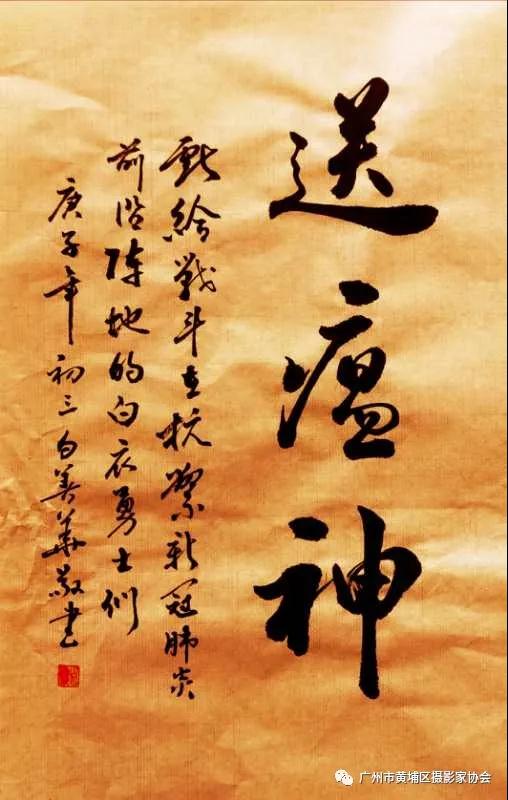 送瘟神
献给战斗在抗击新冠肺炎
前沿阵地的白衣勇士们
庚子年初三白善華敬書
广州市黄埔区摄影家协会